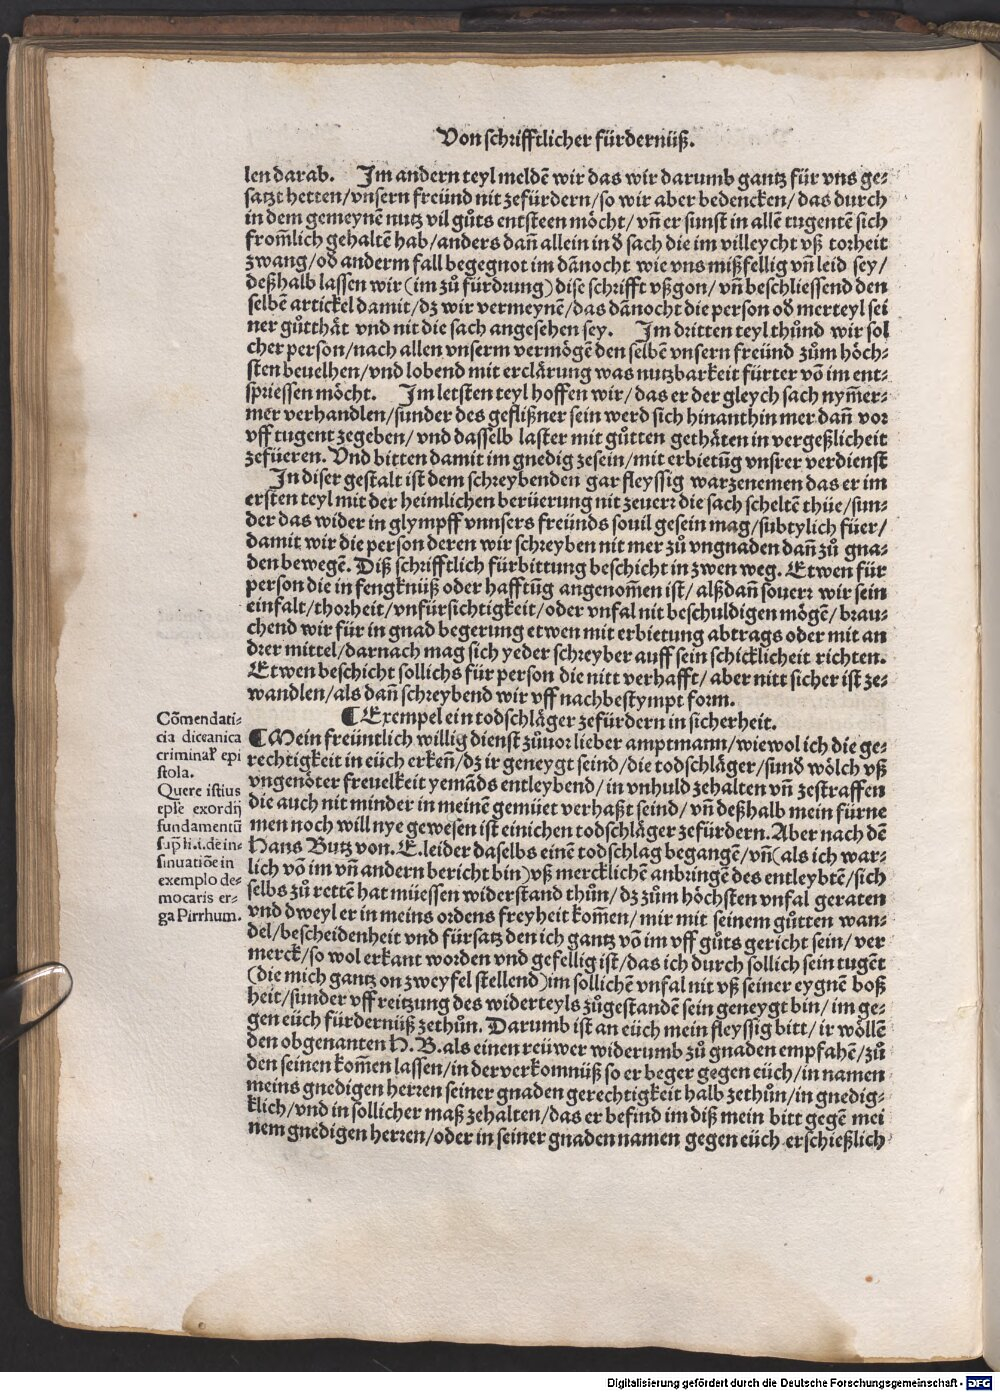 Von schrifftlicher fürdernüß.
len darab. Im andern teyl meldē wir das wir darumb gantz für vns ge⸗
satzt hetten/vnsern freünd nit zefürdern/so wir aber bedencken/das durch
in dem gemeynē nutz vil gůts entsteen möcht/vn̄ er sunst in allē tugentē sich
from̄lich gehaltē hab/anders dan̄ allein in d sach die im villeycht vß torheit
zwang/od anderm fall begegnot im dānocht wie vns mißfellig vn̄ leid sey/
deßhalb lassen wir (im zů fürdrung) dise schrifft vßgon/vn̄ beschliessend den
selbē artickel damit/dz wir vermeynē/das dānocht die person od merteyl sei
ner gůtthät vnd nit die sach angesehen sey. Im dritten teyl thůnd wir sol
cher person/nach allen vnserm vermögē den selbē vnsern freünd zům höch⸗
sten beuelhen/vnd lobend mit erclärung was nutzbarkeit fürter vō im ent⸗
spriessen möcht. Im letsten teyl hoffen wir/das er der gleych sach nym̄er⸗
mer verhandlen/sunder des geflißner sein werd sich hinanthin mer dan̄ vor
vff tugent zegeben/vnd dasselb laster mit gůtten gethäten in vergeßlicheit
zefüeren. Vnd bitten damit im gnedig zesein/mit erbietūg vnsrer verdienst
In diser gestalt ist dem schreybenden gar fleyssig warzenemen das er im
ersten teyl mit der heimlichen berüerung nit zeuerr die sach scheltē thüe/sun⸗
der das wider in glympff vnnsers freünds souil gesein mag/subtylich füer/
damit wir die person deren wir schreyben nit mer zů vngnaden dan̄ zů gna⸗
den bewegē. Diß schrifftlich fürbittung beschicht in zwen weg. Etwen für
person die in fengknüß oder hafftūg angenom̄en ist/alßdan̄ souerr wir sein
einfalt/thorheit/vnfürsichtigkeit/oder vnfal nit beschuldigen mögē/brau⸗
chend wir für in gnad begerung etwen mit erbietung abtrags oder mit an
drer mittel/darnach mag sich yeder schreyber auff sein schicklicheit richten.
Etwen beschicht sollichs für person die nitt verhafft/aber nitt sicher ist ze⸗
wandlen/als dan̄ schreybend wir vff nachbestympt form.
¶Exempel ein todschläger zefürdern in sicherheit.
¶Mein freüntlich willig dienst zůuor lieber amptmann/wiewol ich die ge⸗
rechtigkeit in eüch erken̄/dz ir geneygt seind/die todschläger/sund wölch vß
vngenöter freuelkeit yemāds entleybend/in vnhuld zehalten vn̄ zestraffen
die auch nit minder in meinē gemüet verhaßt seind/vn̄ deßhalb mein fürne
men noch will nye gewesen ist einichen todschläger zefürdern. Aber nach dē
Hans Butz von. E. leider daselbs einē todschlag begangē/vn̄(als ich war⸗
lich vō im vn̄ andern bericht bin)vß mercklichē anbringē des entleybtē/sich
selbs zů rettē hat müessen widerstand thůn/dz zům höchsten vnfal geraten
vnd dweyl er in meins ordens freyheit kom̄en/mir mit seinem gůtten wan⸗
del/bescheidenheit vnd fürsatz den ich gantz vō im vff gůts gericht sein/ver
merck/so wol erkant worden vnd gefellig ist/das ich durch sollich sein tugēt
(die mich gantz on zweyfel stellend)im sollichē vnfal nit vß seiner eygnē boß
heit/sunder vff reitzung des widerteyls zůgestandē sein geneygt bin/im ge⸗
gen eüch fürdernüß zethůn. Darumb ist an eüch mein fleyssig bitt/ir wöllē
den obgenanten H. B. als einen reüwer widerumb zů gnaden empfahē/zů
den seinen kom̄en lassen/in der verkomnüß so er beger gegen eüch/in namen
meins gnedigen herren seiner gnaden gerechtigkeit halb zethůn/in gnedig⸗
klich/vnd in sollicher maß zehalten/das er befind im diß mein bitt gegē mei
nem gnedigen herren/oder in seiner gnaden namen gegen eüch erschießlich
Cōmendati⸗
cia diceanica
criminaƚ epi
stola.
Quere istius
epl̄e exordij
fundamentū
sup̱ li.i.de in⸗
sinuatiōe in
exemplo de⸗
mocaris er⸗
ga Pirrhum.
Digitalisierung gefördert durch die Deutsche Forschungsgemeinschaft - DFG